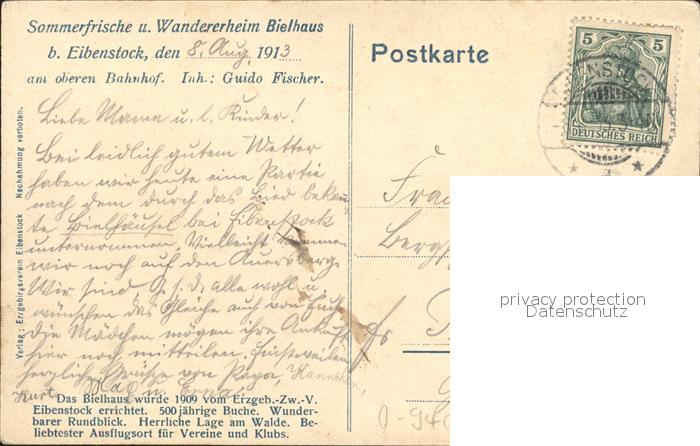 Sommerfrische u. Wandererheim Bielhaus
b. Eibenstock, den 8. Aug. 1913
am oberen Bahnhof. Inh.: Guido Fischer.
Postkarte
5 5
DEUTSCHES REICH
Liebe Mama u. l. Kinder!
Bei leidlich gutem Wetter
haben wir heute eine Partie
nach dem durch das Lied bekann-
te Bielhäusel bei Eibenstock
unternommen. Vielleicht kommen
wir noch auf den Auersberg.
Wir sind G. s. D. alle wohl u.
wünschen das Gleiche auch von Euch.
Die Mädchen mögen ihre Ankunft
hier noch mitteilen.
herzliche Grüsse von Papa, Hannchen,
Kurt,
Frau
Das Bielhaus wurde 1909 vom Erzgeb.-Zw.-V.
Eibenstock errichtet. 500 jährige Buche. Wunder-
barer Rundblick. Herrliche Lage am Walde. Be-
liebtester Ausflugsort für Vereine und Klubs.
Verlag: Erzgebirgsverein Eibenstock Nachahmung verboten.
privacy protection
Datenschutz